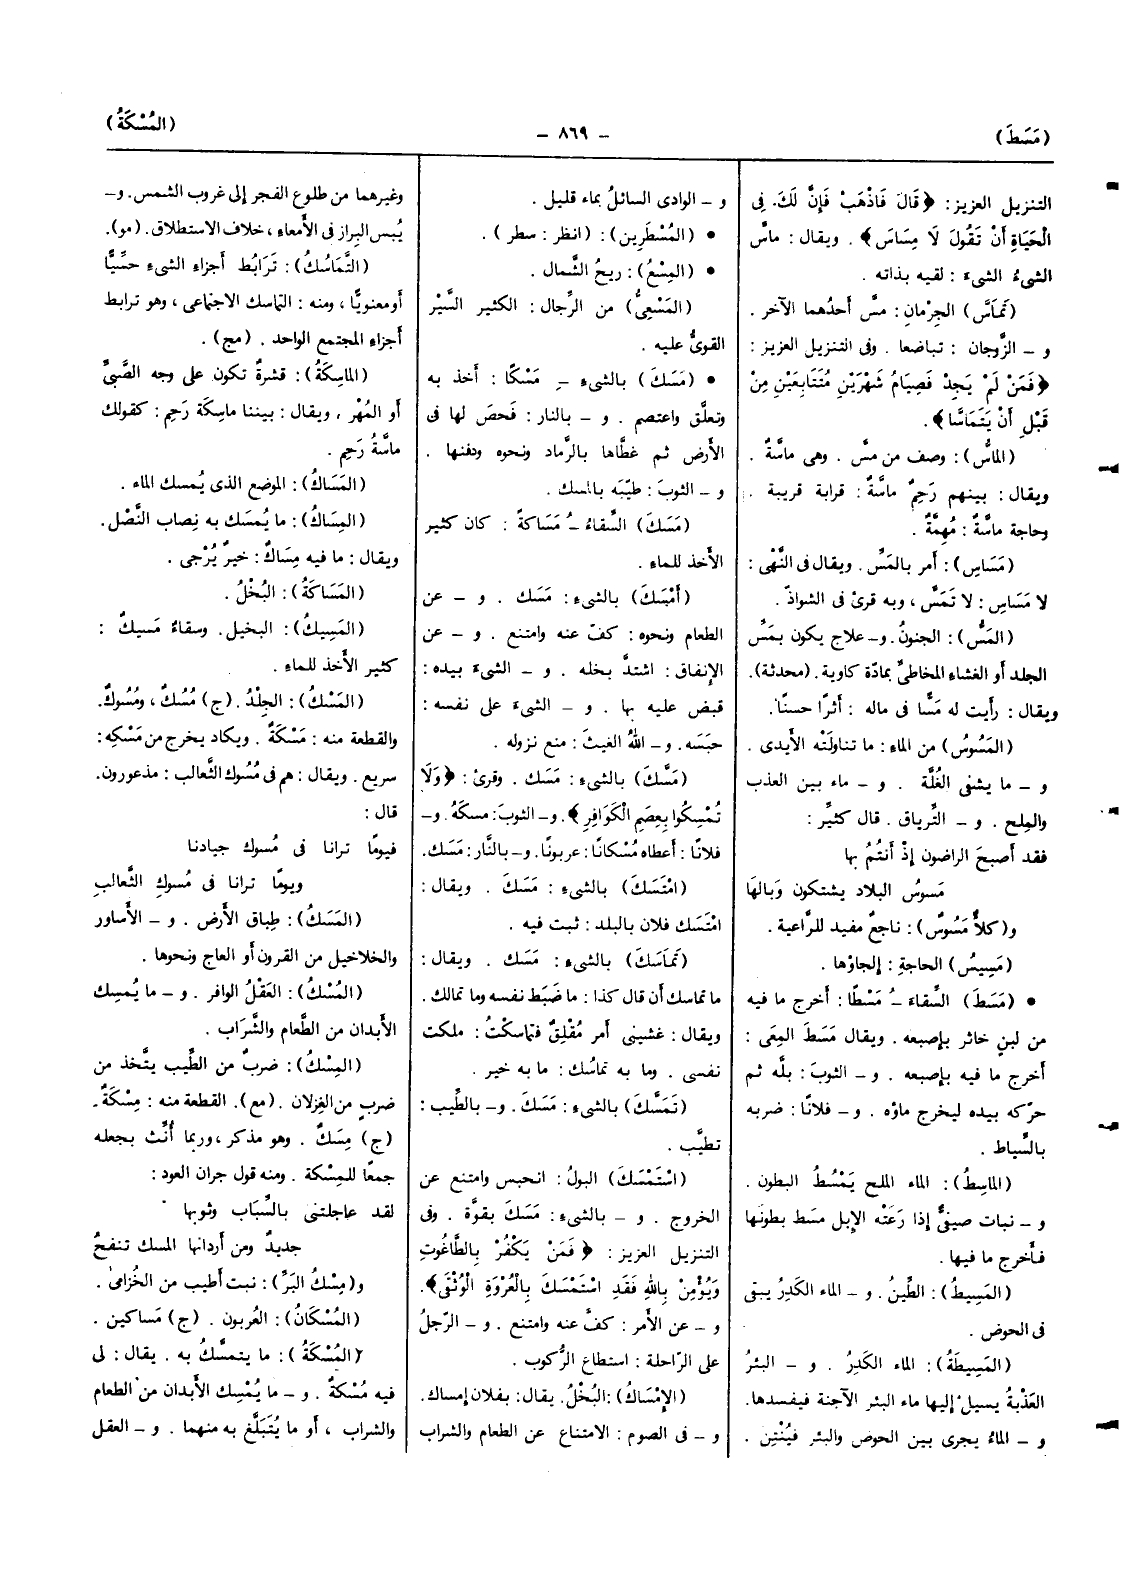 (مَسَطَ)
- ٨٦٩ -
(المُسْكَةُ)
التنزيل العزيز : ﴿ قَالَ فَاذْهَبْ فَإِنَّ لَكَ. فِى
الْحَيَاةِ أَنْ تَقُولَ لَا مِسَاسَ ﴾ . ويقال : ماسَّ
الشىءُ الشىءَ : لقيه بذاته .
(تَماسَّ) الجِرْمانِ : مسَّ أحدُهما الآخر .
و – الزَّوجان : تباضعا . وفى التنزيل العزيز :
﴿ فَمَنْ لَمْ يَجِدْ فَصِيَامُ شَهْرَيْنِ مُتَتَابِعَيْنِ مِنْ
قَبْلِ أَنْ يَتَمَاسَّا ﴾ .
(الماسُّ) : وصف من مسَّ . وهى ماسَّةٌ .
ويقال : بينهم رَحِمٌ ماسَّةٌ : قرابة قريبة .
وحاجة ماسَّةٌ : مُهِمَّةٌ .
(مَسَاسِ) : أمر بالمَسِّ . ويقال فى النَّهْى :
لا مَسَاسِ : لا تَمَسَّ ، وبه قرئ فى الشواذّ .
(المَسُّ) : الجنونُ. و– علاج يكون بمَسِّ
الجلد أو الغشاء المخاطىِّ بمادّة كاوية . (محدثة).
ويقال : رأيت له مَسًّا فى ماله : أثرًا حسنًا .
(المَسُوسُ) من الماء : ما تناولَتْه الأيدى .
و – ما يشفى الغُلَّة . و – ماء بين العذب
والمِلح . و – التِّرياق . قال كثيِّر :
فقد أصبحَ الراضون إذْ أنتُمُ بها
مَسوسُ البلاد يشتكون وَبالهَا
و(كلأٌ مَسُوسٌ) : ناجعٌ مفيد للرَّاعية .
(مَسِيسُ) الحاجةِ : إلجاؤها .
• (مَسَطَ) السِّقاءَ ـُ مَسْطًا : أخرج ما فيه
من لبنٍ خاثر بإصبعه . ويقال مَسَطَ المِعَى :
أخرج ما فيه بإصبعه . و – الثوبَ : بلَّه ثم
حرّكه بيده ليخرج ماؤه . و – فلانًا : ضربه
بالسِّياط .
(الماسِطُ) : الماء الملح يَمْسُطُ البطون .
و – نبات صيفىٌّ إذا رَعَتْه الإبل مسَط بطونَها
فأخرج ما فيها .
(المَسِيطُ) : الطِّينُ . و – الماء الكَدِرُ يبقى
فى الحوض .
(المَسِيطَةُ) : الماء الكَدِرُ . و – البئرُ
العَذْبةُ يسيل إليها ماء البئر الآجنة فيفسدها.
و – الماءُ يجرى بين الحوض والبئر فيُنْتِن .
و – الوادى السائلُ بماء قليل .
• (المُسْطَرِين) : (انظر : سطر ) .
• (المِسْعُ) : ريحُ الشَّمال .
(المَسْعِىُّ) من الرِّجال : الكثير السَّيْر
القوىُّ عليه .
• (مَسَكَ) بالشىء ـِ مَسْكًا : أخذ به
وتعلَّق واعتصم . و – بالنار : فَحصَ لها فى
الأَرض ثم غطَّاها بالرَّماد ونحوه ودفنها .
و – الثوبَ : طيّبَه بالمسك .
(مَسَكَ) السِّقاءُ ـُ مَسَاكةً : كان كثير
الأخذ للماء .
(أَمْسَكَ) بالشىء : مَسَك . و – عن
الطعام ونحوه : كفّ عنه وامتنع . و – عن
الإنفاق : اشتدَّ بخله . و – الشىءَ بيده :
قبض عليه بها . و – الشىءَ على نفسه :
حبَسَه . و – اللهُ الغيثَ : منع نزوله .
(مَسَّكَ) بالشىء : مَسَك . وقرئ : ﴿ وَلَا
تُمَسِّكُوا بِعِصَمِ الْكَوَافِرِ ﴾ . و– الثوبَ : مسكَهُ . و–
فلانًا : أَعطاه مُسْكانًا : عربونًا . و– بالنَّار : مَسَك.
(امْتَسَكَ) بالشىء : مَسَكَ . ويقال :
امْتَسَك فلان بالبلد : ثبت فيه .
(تَماسَكَ) بالشىء : مَسَك . ويقال :
ما تماسك أن قال كذا : ما ضَبَط نفسه وما تمالك .
ويقال : غشينى أمر مُقْلِقٌ فتماسكْتُ : ملكت
نفسى . وما به تماسُك : ما به خير .
(تَمَسَّكَ) بالشىء : مَسَكَ . و– بالطِّيب :
تطيَّب .
(اسْتَمْسَكَ) البولُ : انحبس وامتنع عن
الخروج . و – بالشىء : مَسَكَ بقوَّة . وفى
التنزيل العزيز : ﴿ فَمَنْ يَكْفُرْ بِالطَّاغُوتِ
وَيُؤْمِنْ بِاللهِ فَقَدِ اسْتَمْسَكَ بِالْعُرْوَةِ الْوُثْقَى ﴾ .
و – عن الأَمر : كفَّ عنه وامتنع . و – الرّجلُ
على الرّاحلة : استطاع الرُّكوب .
(الإِمْسَاكُ) : البُخْلُ . يقال : بفلان إمساك .
و – فى الصوم : الامتناع عن الطعام والشراب
وغيرهما من طلوع الفجر إلى غروب الشمس. و–
يُبس البراز فى الأمعاء ، خلاف الاستطلاق . (مو).
(التَّماسُكُ) : تَرَابُط أجزاء الشىء حسِّيًّا
أو معنويًّا ، ومنه : التماسك الاجتماعى ، وهو ترابط
أجزاء المجتمع الواحد . (مج) .
(الماسِكَةُ) : قشرةٌ تكون على وجه الصَّبىِّ
أو المُهْر ، ويقال : بيننا ماسِكَة رَحِم : كقولك
ماسَّةُ رَحِم .
(المَسَاكُ) : الموضع الذى يُمسك الماء .
(المِسَاكُ) : ما يُمسَك به نِصاب النَّصْل .
ويقال : ما فيه مِسَاكٌ : خيرٌ يُرْجى .
(المَسَاكَةُ) : البُخْلُ .
(المَسِيكُ) : البخيل . وسقاءٌ مَسيكٌ :
كثير الأَخذ للماء .
(المَسْكُ) : الجِلْدُ . (ج) مُسُكٌ ، ومُسُوكٌ.
والقطعة منه : مَسْكَةٌ . ويكاد يخرج من مَسْكِه :
سريع . ويقال : هم فى مُسُوك الثَّعالب : مذعورون.
قال :
فيومًا ترانا فى مُسوك جيادنا
ويومًا ترانا فى مُسوكِ الثَّعالبِ
(المَسَكُ) : طِباق الأَرض . و – الأَساور
والخلاخيل من القرون أَو العاج ونحوها .
(المُسْكُ) : العَقْلُ الوافر . و – ما يُمسِك
الأَبدان من الطَّعام والشَّراب .
(المِسْكُ) : ضربٌ من الطِّيب يتَّخذ من
ضربٍ من الغِزلان . (مع). القطعة منه : مِسْكَةٌ.
(ج) مِسَكٌ . وهو مذكر ، وربما أُنِّث بجعله
جمعًا للمِسْكة . ومنه قول جران العود :
لقد عاجلتنى بالسِّبَاب وثوبها
جديدٌ ومن أردانها المسك تنفحُ
و(مِسْكُ البَرِّ) : نبت أطيب من الخُزامى .
(المُسْكَانُ) : العُربون . (ج) مَساكين .
(المُسْكَةُ) : ما يتمسَّكُ به . يقال : لى
فيه مُسْكةٌ . و – ما يُمْسِك الأَبدان من الطعام
والشراب ، أَو ما يُتَبَلَّغ به منهما . و – العقل